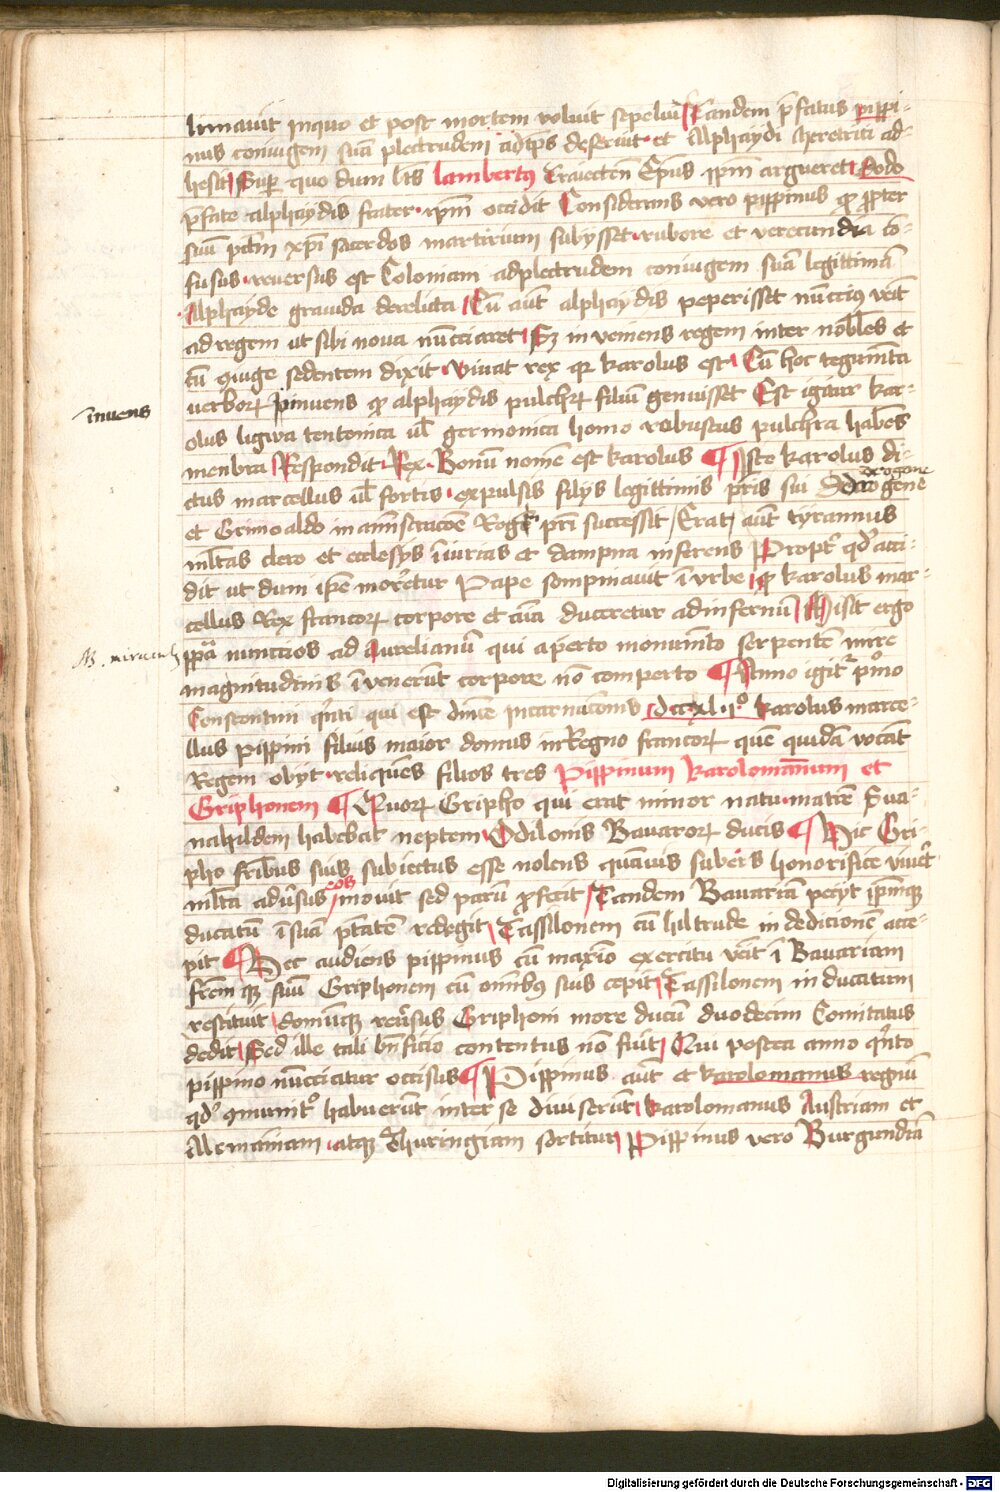 limauit inquo et post mortem voluit sepeliri Tandem p̄fatus pippi-
nus coniugem suā plectrudem ad tp̄s deseruit et Alphaydi meretrici ad-
hesit Sup quo dum bt̄s lambertus Traiecten Ep̄us ip̄m argueret dodo
p̄fate alphaydis frater ip̄m occidit Considerans vero pippinus ꝙ ꝓpter
suū pctm̄ xp̄i sacerdos martirium subysset rubore et verecundia cō-
fusus reuersus est Coloniam ad plectrudem coniugem suā legittimā
Alphayde grauida derelicta Cū aūt alphaydis peperisset nūccius veīt
ad regem ut sibi noua nūcciaret Sꝫ inveniens regem inter nobl̄es et
cū ꝯiuge sedentem dixit viuat rex qr karolus est Cū hoc tegumēta
verboꝝ inuens ꝙ alphaydis pulchꝝ filiū genuisset Est igitur kar-
inuens
olus ligwa teutonica ul̄ germonica homo robustus pulchra habēs
menbra Respondit Rex Bonū nomē est karolus ¶ Iste karolus di-
drogone
ctus marcellus ul̄ fortis expulsis filiis legittimis p̄ris sui drogene
et Grimoaldo in amīstracōe Rogꝭ pr̄i successit Erat aūt tyrannus
ml̄tas clero et ecclesys iniurias et dampna inferens Propt̄ qd̄ acci-
dit ut dum ip̄e moretur Pape sompniauit ī vrbe ꝙ karolus mar-
cellus Rex francoꝝ corpore et aīa duceretur ad infernū Misit ergo
ppa nunccios ad Aurelianū qui aperto monumēto serpentē mire
magnitudinis īvenerūt corpore nō comperto ¶ Anno igit̄ pⁱmo
Constantini qⁱnti qui est dn̄ice incarnacionis dccxl.i° karolus marce-
llus pippini filius maior domus in Regno francoꝝ quē quidā vocāt
Regem obyt reliquēs filios tres Pippinum karolomānum et
Griphonem ¶ Quoꝝ Gripho qui erat minor natu matrē Sua-
nahildem habebat neptem Odilonis Bauaroꝝ ducis ¶ Hic Gri-
pho fr̄ibus suis subiectus esse nolens quāuis sub eis honorifice viuēt
ml̄ta adūsus eos mouit sed parū ꝓfecit Tandem Bauariā pecyt ip̄mqꝫ
ducatū ī suā ptātē redegit Tassilonem cū hiltrude in dedicionē acce-
pit ¶ Hec audiens pippinus cū maxīo exercitu veīt ī Bauariam
fr̄emqꝫ suū Griphonem cū omībꝰ suis cepit Tassilonem in ducatum
restituit domūqꝫ reūsus Griphoni more ducū duodecim Comitatus
dedit Sed ille tali bn̄ficio contentus nō fuit Qui postea anno qⁱnto
pippino nūcciatur occisus ¶ Pippinus aūt et karolomanus regnū
qd̄ ꝯmunit° habuerūt inter se diuiserūt karolomanus Austriam et
Alemāniam atqꝫ Thuringiam sortitur Pippinus vero Burgundiā
Digitalisierung gefördert durch die Deutsche Forschungsgemeinschaft - DFG